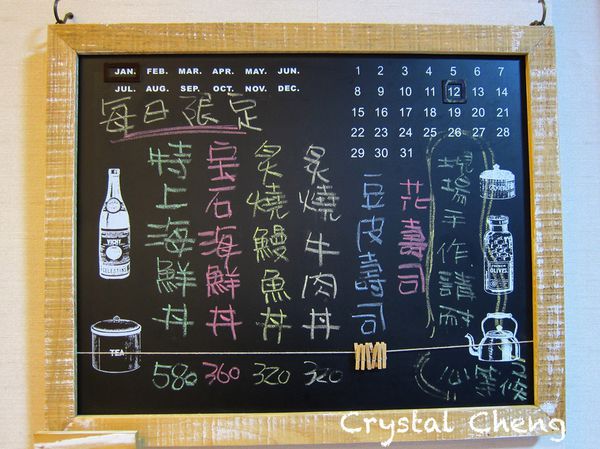 JAN. FEB. MAR. APR. MAY. JUN.
JUL. AUG. SEP. OCT. NOV. DEC.
1 2 3 4 5 6 7
8 9 10 11 12 13 14
15 16 17 18 19 20 21
22 23 24 25 26 27 28
29 30 31
每日限定
特上海鮮丼 580
宝石海鮮丼 360
炙燒鰻魚丼 320
炙燒牛肉丼 320
豆皮壽司
花壽司
現場手作,請耐
心等候
VICHY
CELESTINS
TEA
OLIVES
Crystal Cheng